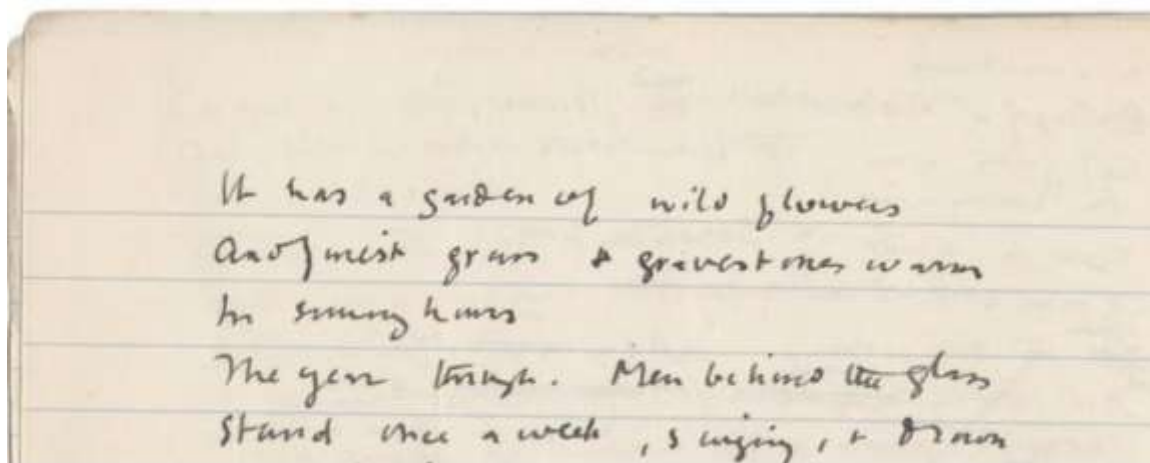 It has a garden of wild flowers
And finest grass & gravestones warm
In sunny hours
The year through. Men behind the glass
Stand once a week, singing, & drown